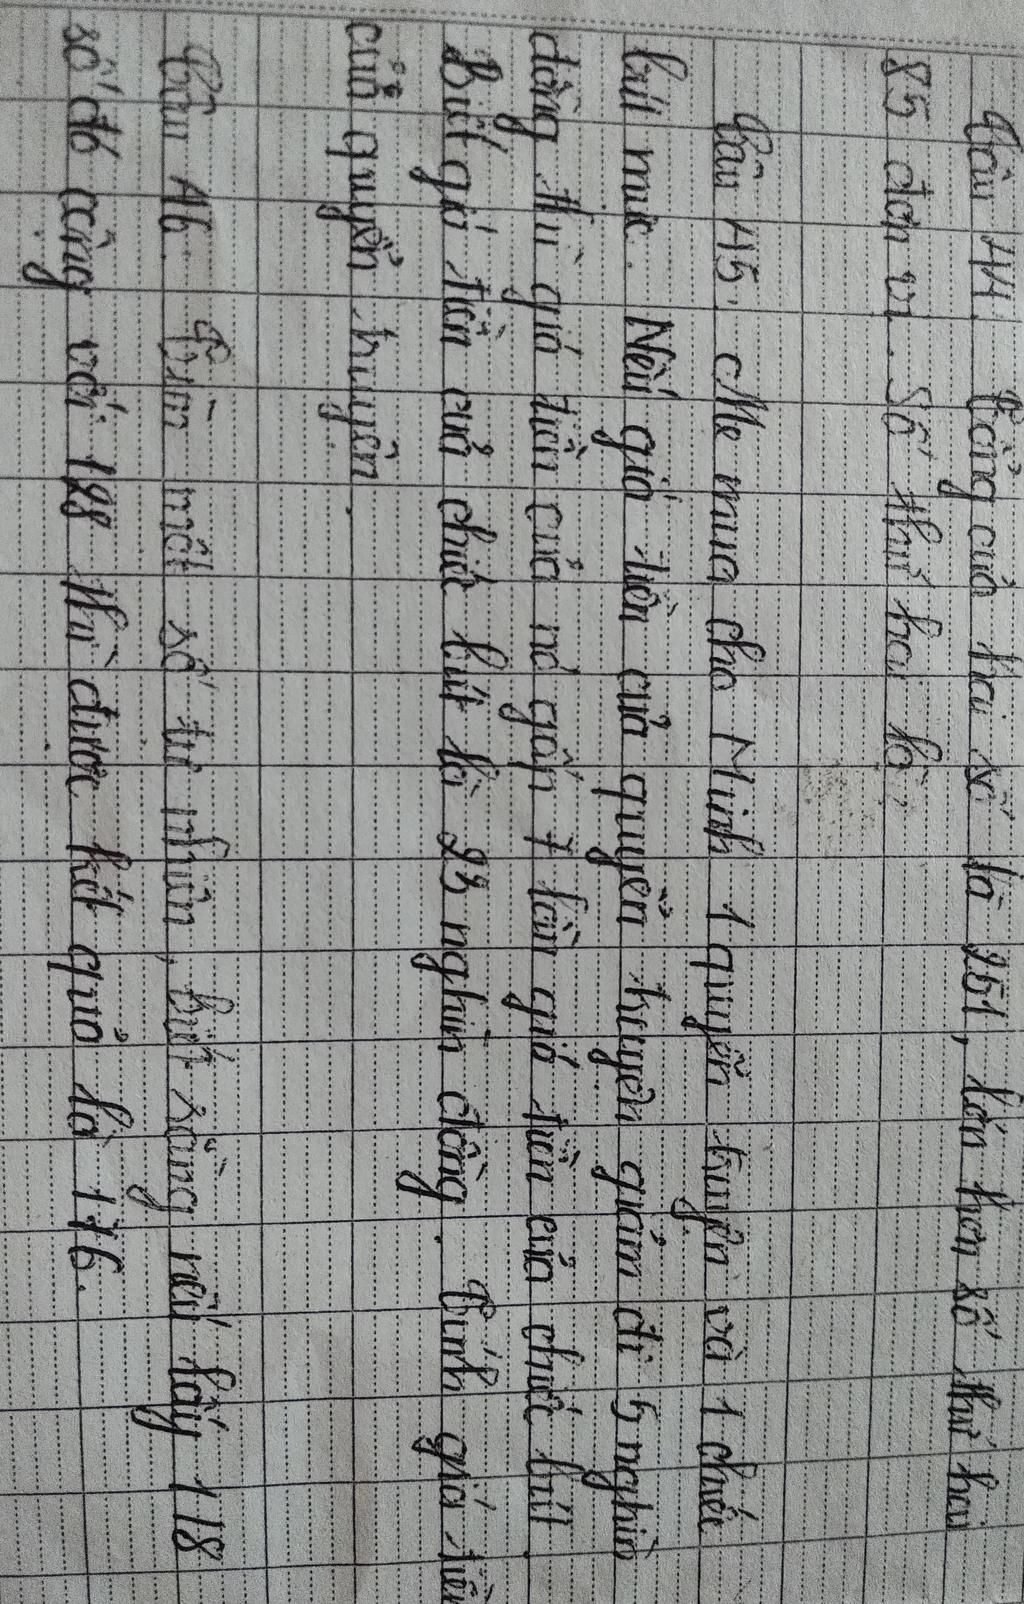 Câu 14. Tổng của hai số là 251, lớn hơn số thứ hai
85 đơn vị. Số thứ hai là:
Câu 15. Mẹ mua cho Minh 1 quyển truyện và 1 chiếc
bút mực. Nếu giá tiền của quyển truyện giảm đi 5 nghìn
đồng thì giá tiền của nó gấp 7 lần giá tiền của chiếc bút.
Biết giá tiền của chiếc bút là 23 nghìn đồng. Tính giá tiền
của quyển truyện.
Câu 16. Tìm một số tự nhiên, biết rằng nếu lấy 118
số đó cộng với 128 thì được kết quả là 176.